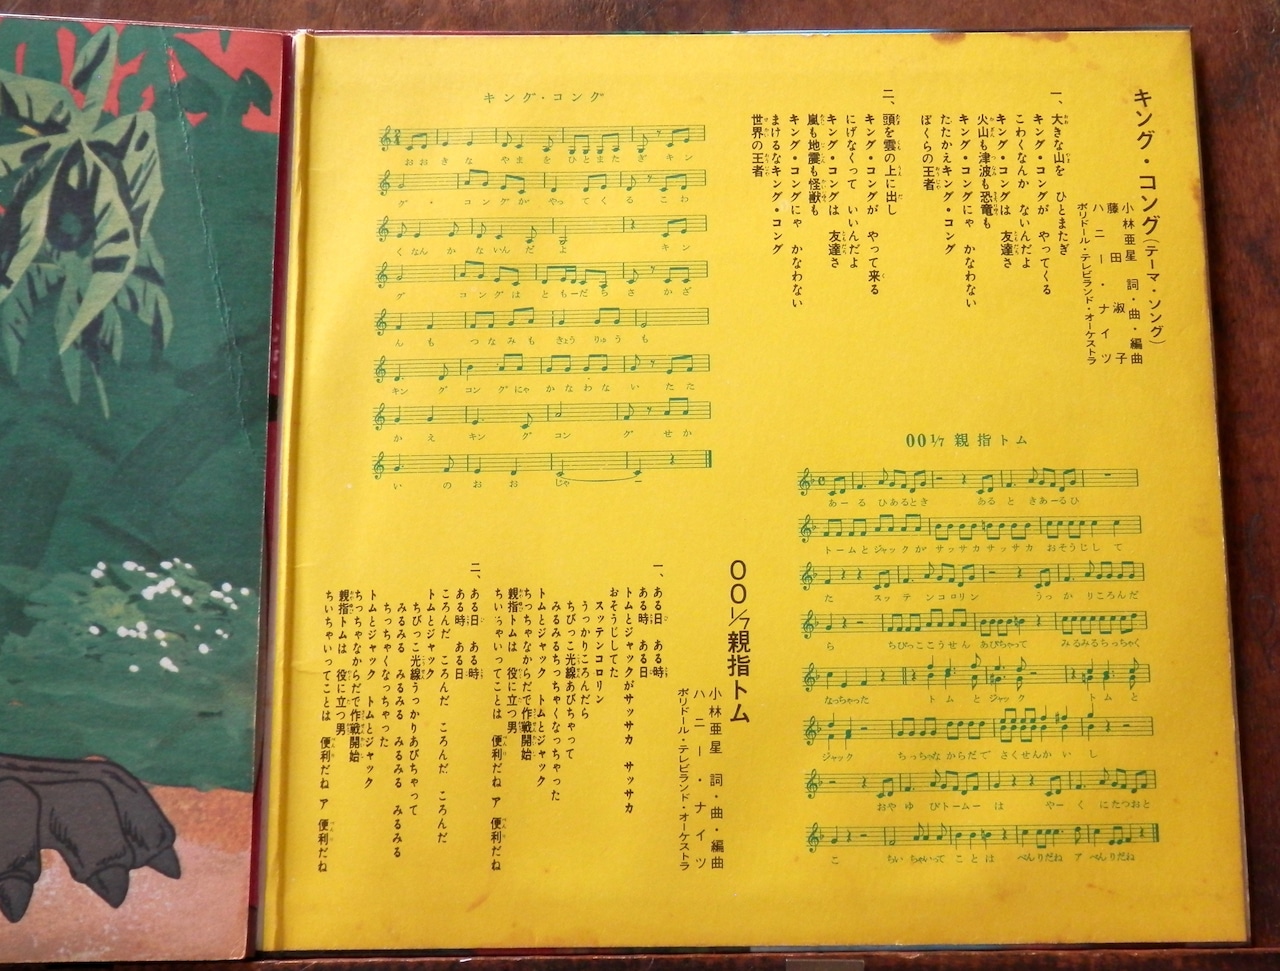 キング・コング(テーマ・ソング)
小林亜星 詞・曲・編曲
藤田淑子
ハニー・ナイツ
ポリドール・テレビランド・オーケストラ
一、大きな山を ひとまたぎ
キング・コングが やってくる
こわくなんか ないんだよ
キング・コングは 友達さ
火山も津波も恐竜も
キング・コングにゃ かなわない
たたかえキング・コング
ぼくらの王者
二、頭を雲の上に出し
キング・コングが やって来る
にげなくって いいんだよ
キング・コングは 友達さ
嵐も地震も怪獣も
キング・コングにゃ かなわない
まけるなキング・コング
世界の王者
キング・コング
おおきな やまを ひとまたぎ キン
グ・コングが やってくる こわ
くなんか ないんだよ キン
グ コングは ともーだちさ かざ
んも つなみも きょうりゅうも
キング コングにゃ かなわない たた
かえ キング コング せか
いの おおじゃー
00 1/7 親指トム
あーる ひあるとき あると きあーるひ
トームとジャックが サッサカサッサカ おそうじして
た スッテンコロリン うっかりころんだ
ら ちびっここうせん あびちゃって みるみるちっちゃく
なっちゃった トムとジャック トムと
ジャック ちっちゃなからだで さくせんかいし
おやゆびトームーは やーくにたつおと
こ ちいちゃいってことは べんりだね ア べんりだね
00 1/7 親指トム
小林亜星 詞・曲・編曲
ハニー・ナイツ
ポリドール・テレビランド・オーケストラ
一、ある日 ある時
ある時 ある日
トムとジャックがサッサカ サッサカ
おそうじしてた
スッテンコロリン
うっかりころんだら
ちびっこ光線あびちゃって
みるみるちっちゃくなっちゃった
トムとジャック トムとジャック
ちっちゃなからだで作戦開始
親指トムは 役に立つ男
ちいちゃいってことは 便利だね ア 便利だね
二、ある日 ある時
ある時 ある日
ころんだ ころんだ ころんだ ころんだ
トムとジャック
ちびっこ光線うっかりあびちゃって
みるみる みるみる みるみる みるみる
ちっちゃくなっちゃった
トムとジャック トムとジャック
ちっちゃなからだで作戦開始
親指トムは 役に立つ男
ちいちゃいってことは 便利だね ア 便利だね